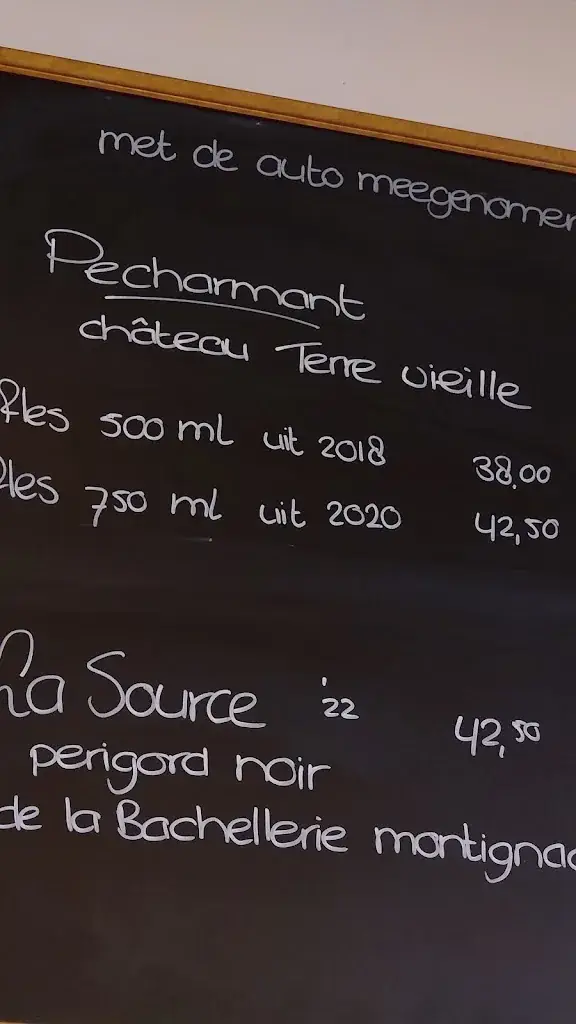 met de auto meegenomen
Pecharmant
château Terre vieille
fles 500 ml uit 2018 38,00
fles 750 ml uit 2020 42,50
La Source '22 42,50
perigord noir
de la Bachellerie montignac